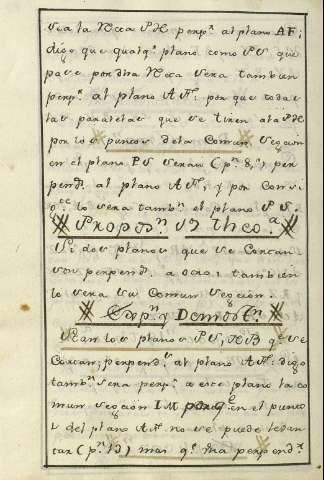 Sea la Recta PH perp.ʳ al plano AF;
digo que qualq.ʳ plano como PS que
pase por dha Recta sera tambien
perp.ʳ al plano AF: por que todas
las paralelas que se tiren a la PH
por los puncos dela Comun Seccion
en el plano PS seran (p.ʳ 8,ᵃ) per
pend.ˢ al plano AF, y por Consi
lo sera tamb.ⁿ el plano PS.
Propos.ⁿ Theo.ᵃ
Si dos planos que se Cortan
son perpend.ˢ a otro; tambien
lo sera su Comun Seccion.
Exp.ⁿ y Demost.ⁿ
Sean los planos PS, RB q.ᵉ se
Cortan, perpend.ˢ al plano AF: digo
tamb.ⁿ sera perp.ʳ a este plano la co
mun seccion IM porq.ᵉ en el punco
del plano AF no se puede levan
tar (p.ʳ 13) mas q.ᵉ una perpend.ʳ